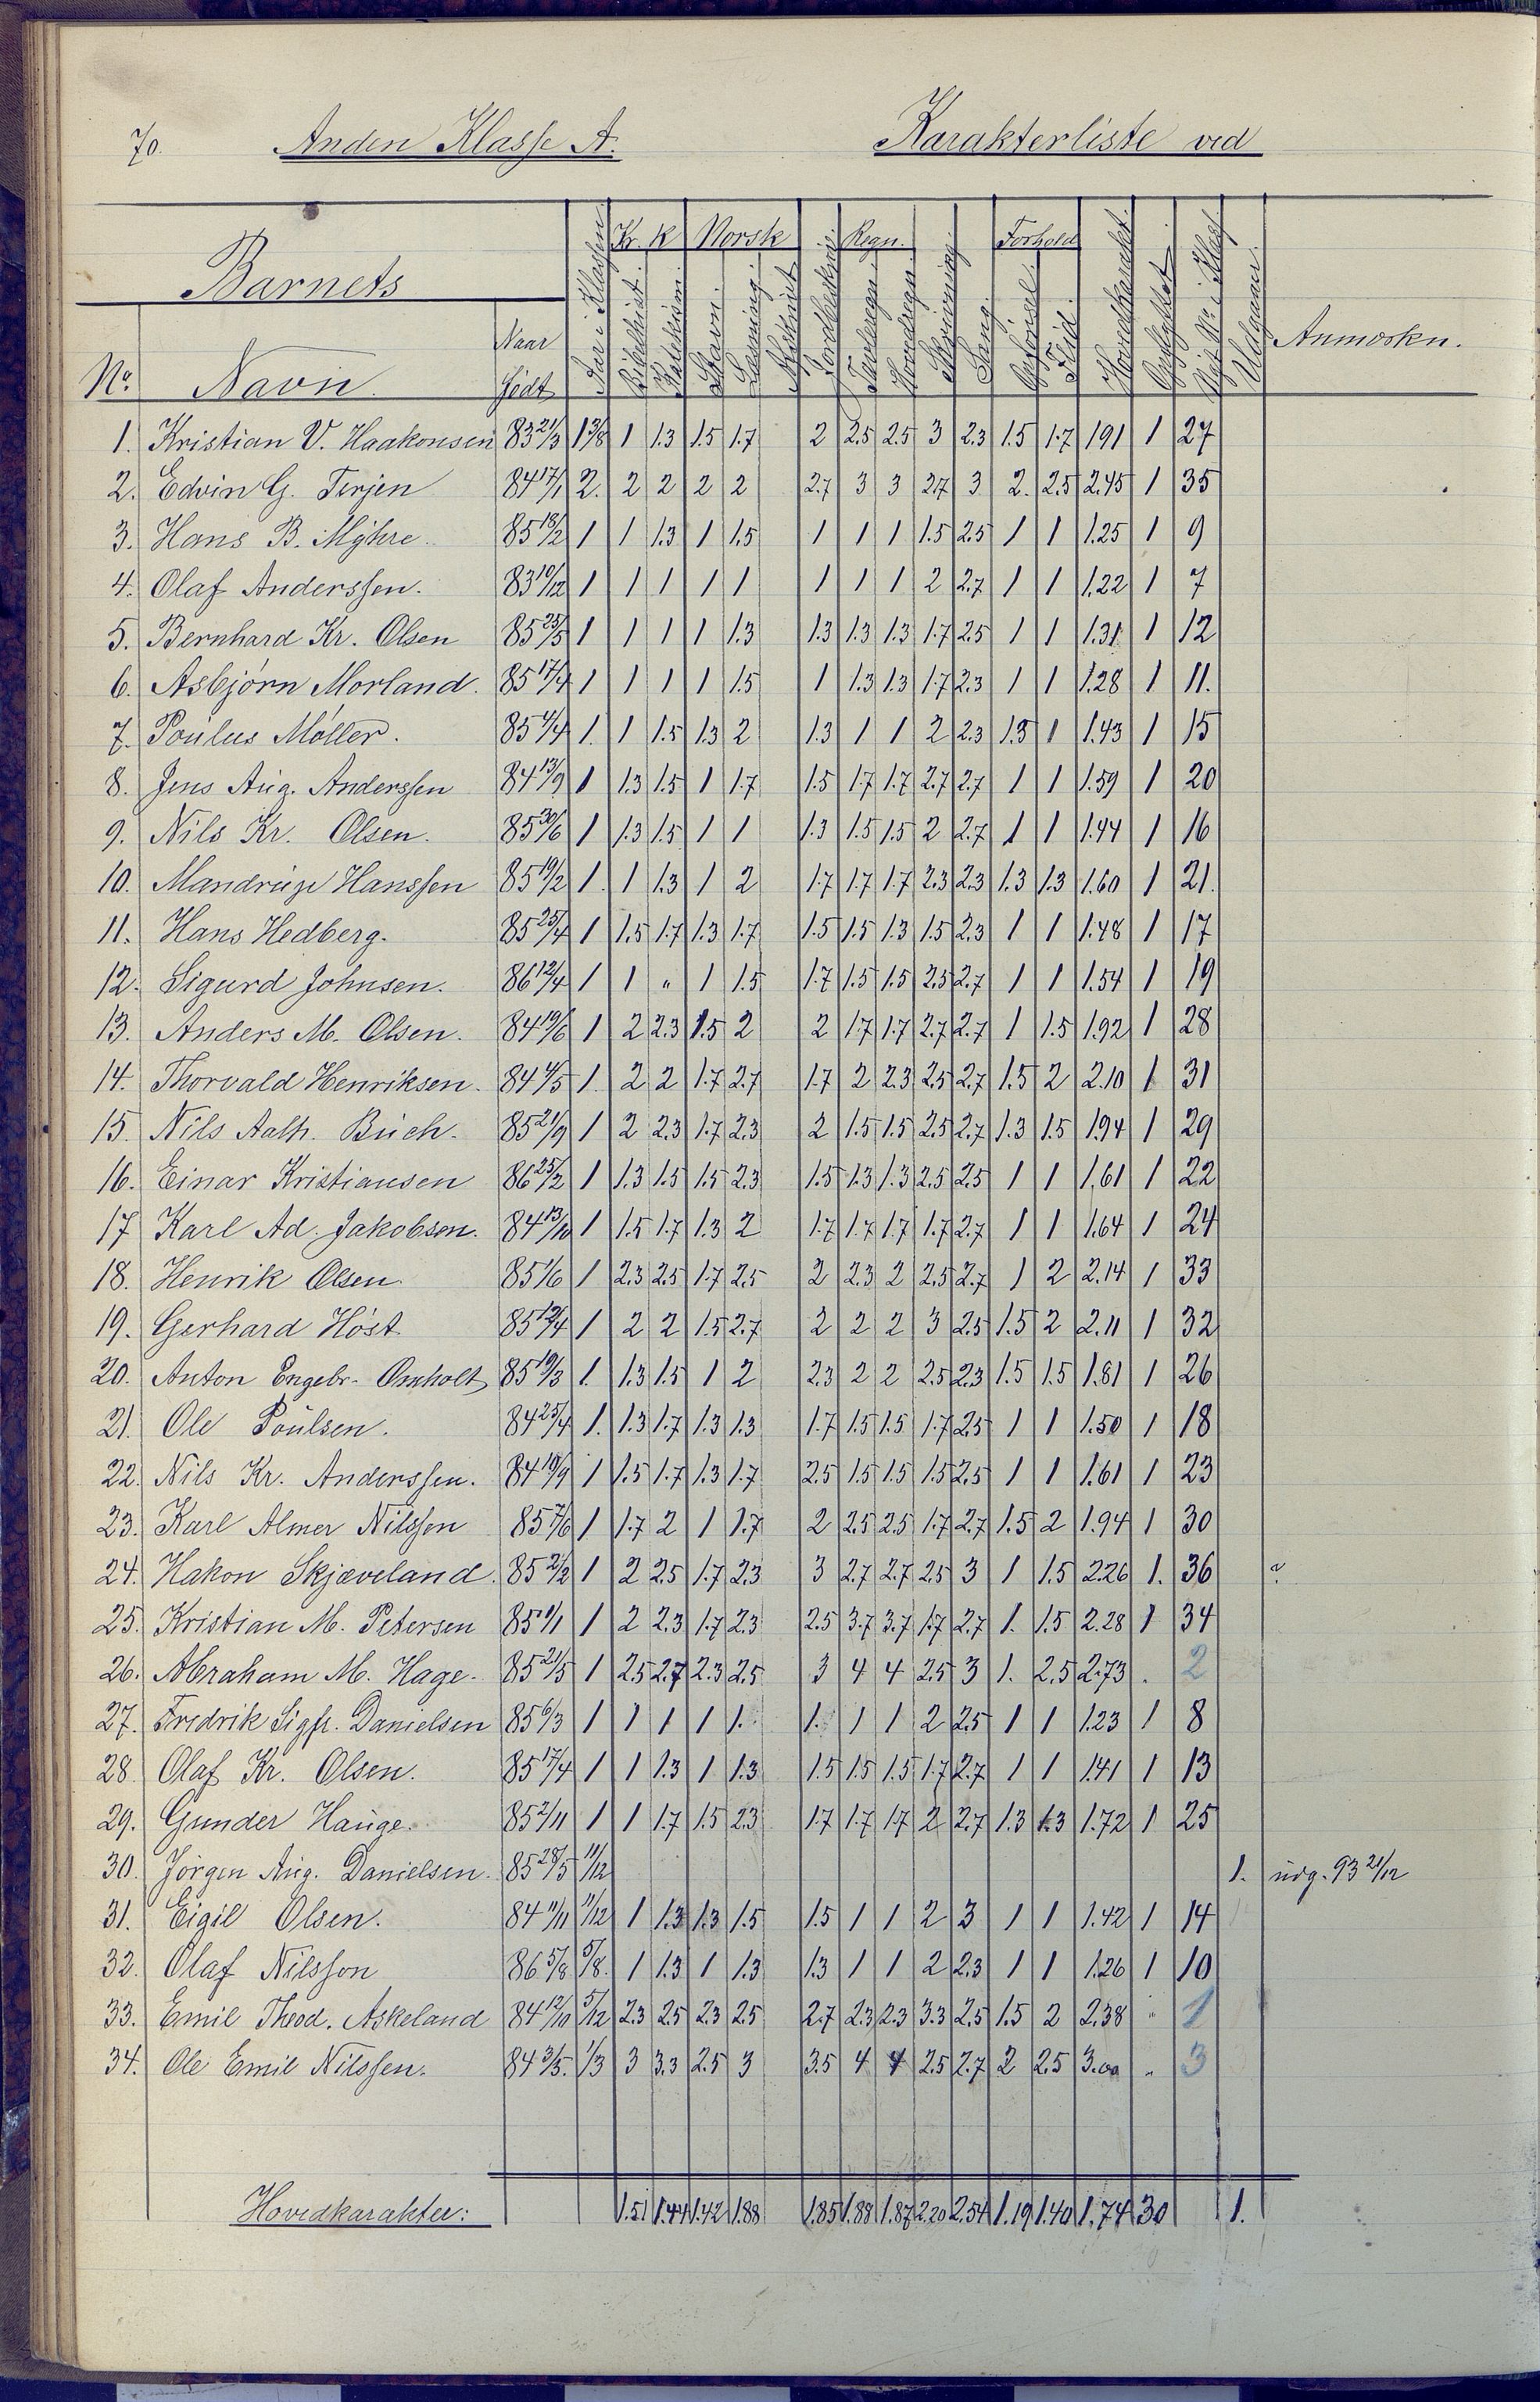 70. Anden Klasse A. Karakterliste ved
Barnets Aar i Klassen Kr. K Norsk Regn. Forhold
No. Navn. Naar født Bibelhist. Katekism. Stavn. Læsning. Tavleregn. Hovedregn. Skrivning. Sang. Opførsel. Flid. Hovedkarakt. Opflyttet Nyt No. i Klas. Udgaar. Anmærkn.
1. Kristian V. Haakonsen 83 21/3 1 3/8 1 1.3 1.5 1.7 2 2.5 2.5 3 2.3 1.5 1.7 1.91 1 27
2. Edvin G. Terjen 84 17/1 2. 2 2 2 2 2.7 3 3 2.7 3 2. 2.5 2.45 1 35
3. Hans B. Myhre. 85 18/2 1 1 1.3 1 1.5 1 1 1 1.5 2.5 1 1 1.25 1 9
4. Olaf Anderssen. 83 10/12 1 1 1 1 1 1 1 1 2 2.7 1 1 1.22 1 7
5. Bernhard Kr. Olsen 85 25/5 1 1 1 1 1.3 1.3 1.3 1.3 1.7 2.5 1 1 1.31 1 12
6. Asbjørn Morland. 85 17/4 1 1 1 1 1.5 1 1.3 1.3 1.7 2.3 1 1 1.28 1 11.
7. Poulus Møller. 85 4/4 1. 1 1.5 1.3 2 1.3 1 1 2 2.3 1.3 1 1.43 1 15
8. Jens Aug. Anderssen 84 13/9 1 1.3 1.5 1 1.7 1.5 1.7 1.7 2.7 2.7 1 1 1.59 1 20
9. Nils Kr. Olsen. 85 30/6 1 1.3 1.5 1 1 1.3 1.5 1.5 2 2.7 1 1 1.44 1 16
10. Mandrup Hanssen 85 19/2 1. 1 1.3 1 2 1.7 1.7 1.7 2.3 2.3 1.3 1.3 1.60 1 21.
11. Hans Hedberg. 85 25/4 1 1.5 1.7 1.3 1.7 1.5 1.5 1.3 1.5 2.3 1 1 1.48 1 17
12. Sigurd Johnsen. 86 12/4 1 1 " 1 1.5 1.7 1.5 1.5 2.5 2.7 1 1 1.54 1 19
13. Anders M. Olsen. 84 19/6 1 2 2.3 1.5 2 2 1.7 1.7 2.7 2.7 1 1.5 1.92 1 28
14. Thorvald Henriksen. 84 4/5 1. 2 2 1.7 2.7 1.7 2 2.3 2.5 2.7 1.5 2 2.10 1 31
15. Nils Aalh. Buch. 85 21/9 1 2 2.3 1.7 2.3 2 1.5 1.5 2.5 2.7 1.3 1.5 1.94 1 29
16. Einar Kristiansen 86 25/2 1 1.3 1.5 1.5 2.3 1.5 1.3 1.3 2.5 2.5 1 1 1.61 1 22
17 Karl Ad. Jakobsen. 84 13/10 1 1.5 1.7 1.3 2 1.7 1.7 1.7 1.7 2.7 1 1 1.64 1 24
18. Henrik Olsen 85 1/6 1 2.3 2.5 1.7 2.5 2 2.3 2 2.5 2.7 1 2 2.14 1 33
19. Gerhard Høst 85 12/4 1 2 2 1.5 2.7 2 2 2 3 2.5 1.5 2 2.11 1 32
20. Anton Engebr. Omholt 85 19/3 1. 1.3 1.5 1 2 2.3 2 2 2.5 2.3 1.5 1.5 1.81 1 26
21. Ole Poulsen. 84 25/4 1. 1.3 1.7 1.3 1.3 1.7 1.5 1.5 1.7 2.5 1 1 1.50 1 18
22. Nils Kr. Anderssen. 84 10/9 1 1.5 1.7 1.3 1.7 2.5 1.5 1.5 1.5 2.5 1 1 1.61 1 23
23. Karl Almer Nilssen 85 7/6 1 1.7 2 1 1.7 2 2.5 2.5 1.7 2.7 1.5 2 1.94 1 30
24. Hakon Skjæveland. 85 2/2 1 2 2.5 1.7 2.3 3 2.7 2.7 2.5 3 1 1.5 2.26 1. 36
25. Kristian M. Petersen 85 1/1 1 2 2.3 1.7 2.3 2.5 3.7 3.7 1.7 2.7 1. 1.5 2.28 1 34
26. Abraham M. Hage. 85 21/5 1 2.5 2.7 2.3 2.5 3 4 4 2.5 3 1. 2.5 2.73 . 2
27. Fredrik Sigfr. Danielsen 85 6/3 1 1 1 1 1. 1. 1 1 2 2.5 1 1 1.23 1 8
28 Olaf Kr. Olsen. 85 17/4 1 1 1.3 1 1.3 1.5 1.5 1.5 1.7 2.7 1 1 1.41 1 13
29. Gunder Hauge. 85 2/11 1 1 1.7 1.5 2.3 1.7 1.7 1.7 2 2.7 1.3 1.3 1.72 1 25
30. Jørgen Aug. Danielsen. 85 28/5 11/12 1. udg. 93 21/12
31. Eigil Olsen. 84 11/11 11/12 1 1.3 1.3 1.5 1.5 1 1 2 3 1 1 1.42 1 14
32. Olaf Nilsson 86 5/8 5/8. 1 1.3 1 1.3 1.3 1 1 2 2.3 1 1 1.26 1 10
33. Emil Theod. Askeland 84 12/10 5/12 2.3 2.5 2.3 2.5 2.7 2.3 2.3 3.3 2.5 1.5 2 2.38 " 1
34. Ole Emil Nilssen. 84 3/5. 1/3 3 3.3 2.5 3 3.5 4 4 2.5 2.7 2 2.5 3.00 " 3
Hovedkarakter: 1.51 1.44 1.42 1.88 1.85 1.88 1.87 2.20 2.54 1.19 1.40 1.74 30 1.